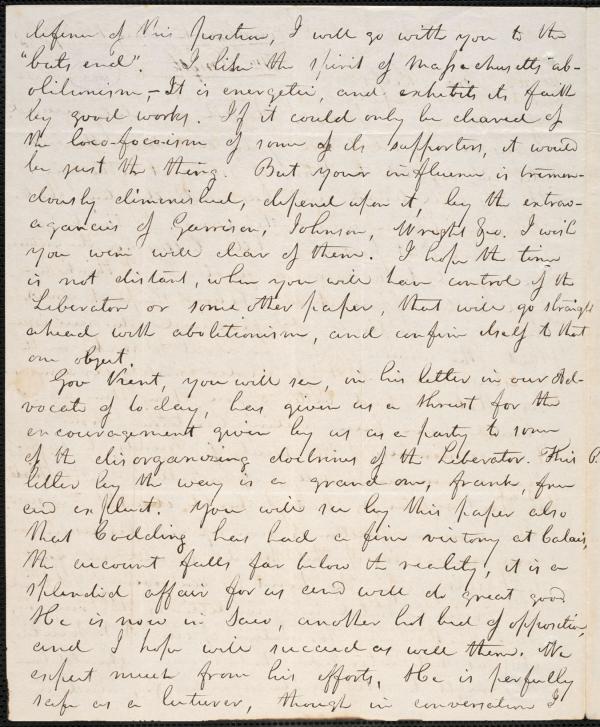 defence of this position, I will go with you to the
"buts end". I like the spirit of Massachusetts ab-
olitionism,—It is energetic, and exhibits its faith
by good works. If it could only be cleared of
the loco-foco-ism of some of its supporters, it would
be just the thing. But your influence is tremen-
dously diminished, depend upon it, by the extrav-
agancies of Garrison, Johnson, Wright &c. I wish
you were well clear of them. I hope the time
is not distant, when you will have control of the
Liberator or some other paper, that will go straight
ahead with abolitionism, and confine itself to that
one object.
Gov Kent, you will see, in his letter in our Ad-
vocate of to day, has given us a thrust for the
encouragement given by us as a party to some
of the disorganizing doctrines of the Liberator. This
letter by the way is a grand one, frank, free
and explicit. You will see by this paper also
that Codding has had a fine victory at Calais,
the account falls far below the reality, it is a
splendid affair for us and will do great good
He is now in Saco, another hot bed of opposition,
and I hope will succeed as well there. We
expect much from his efforts, He is perfectly
safe as a lecturer, though in conversation I